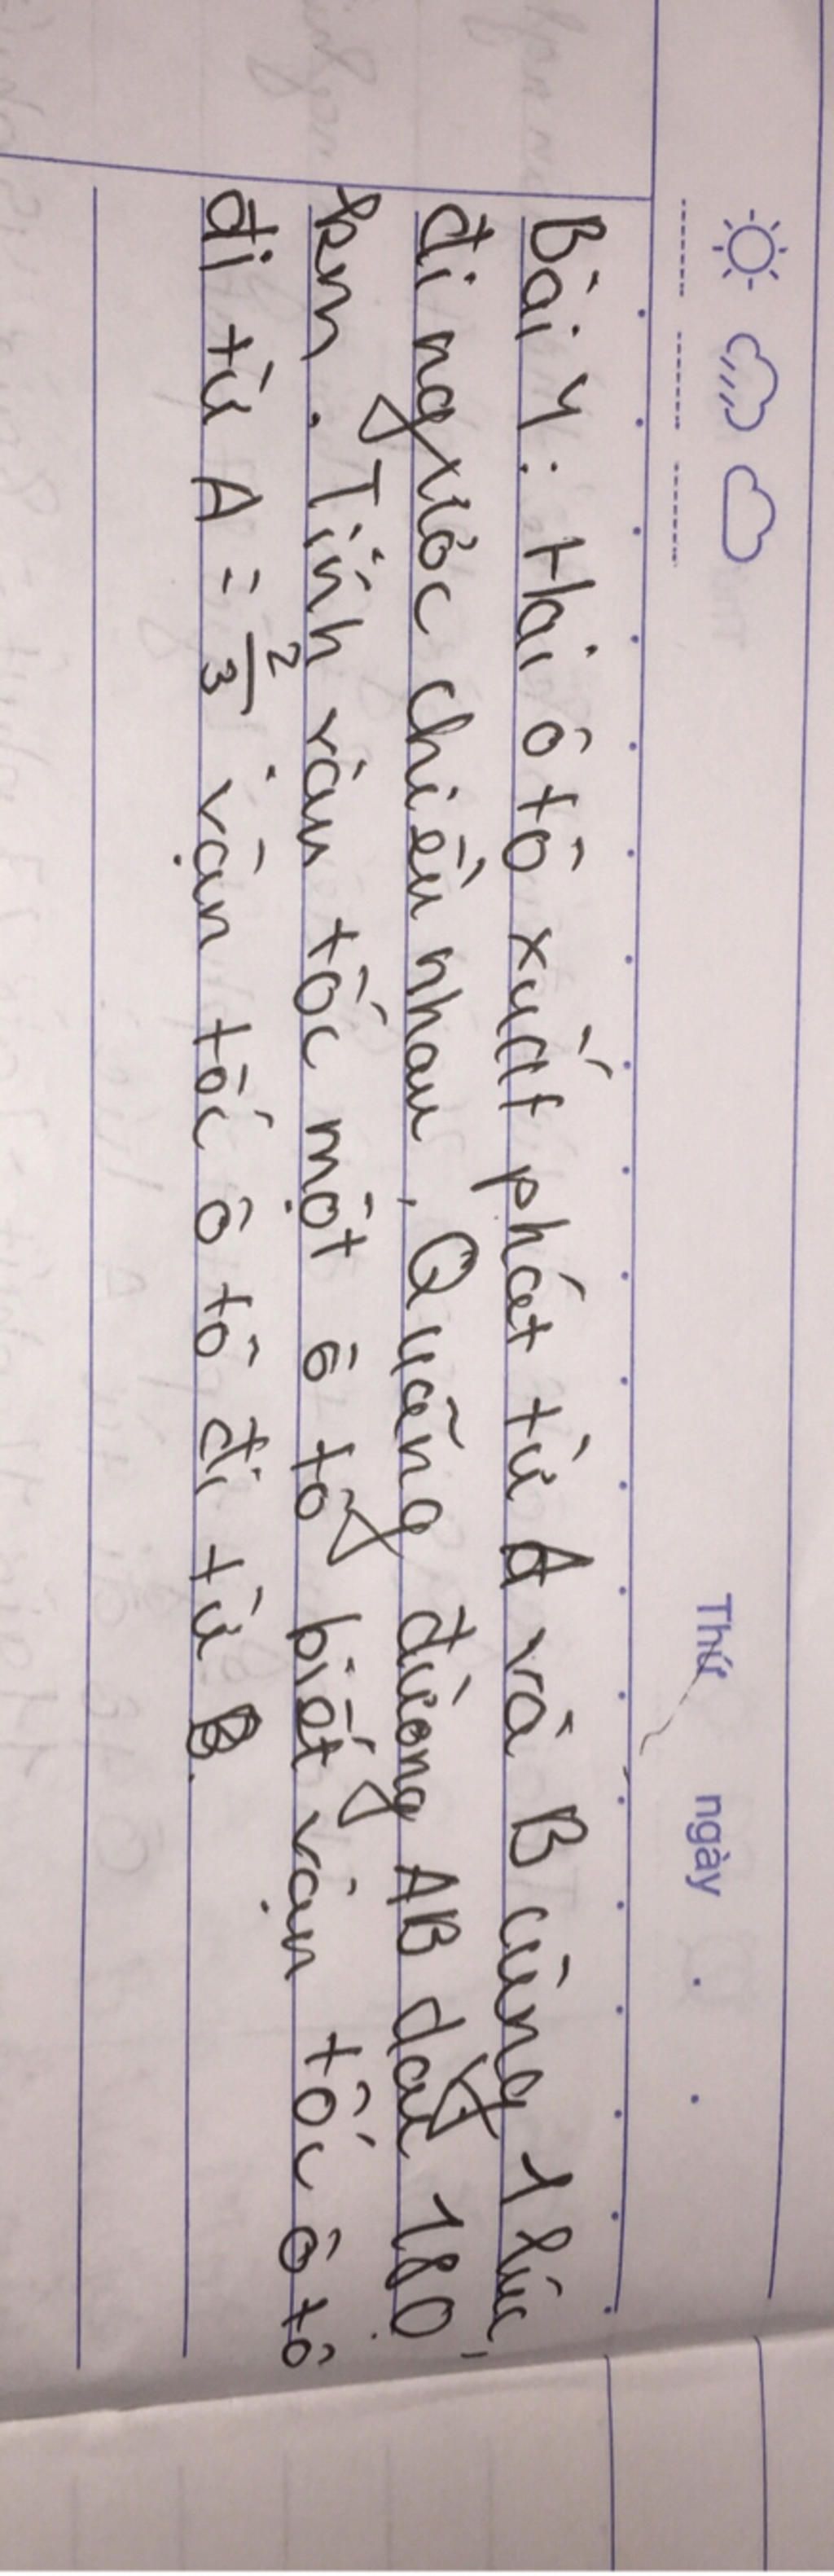 Thứ ngày
Bài 4: Hai ô tô xuất phát từ A và B cùng 1 lúc,
đi ngược chiều nhau. Quãng đường AB dài 180
km. Tính vân tốc một ô tô biết vận tốc ô tô
đi từ A = 2/3 vận tốc ô tô đi từ B.